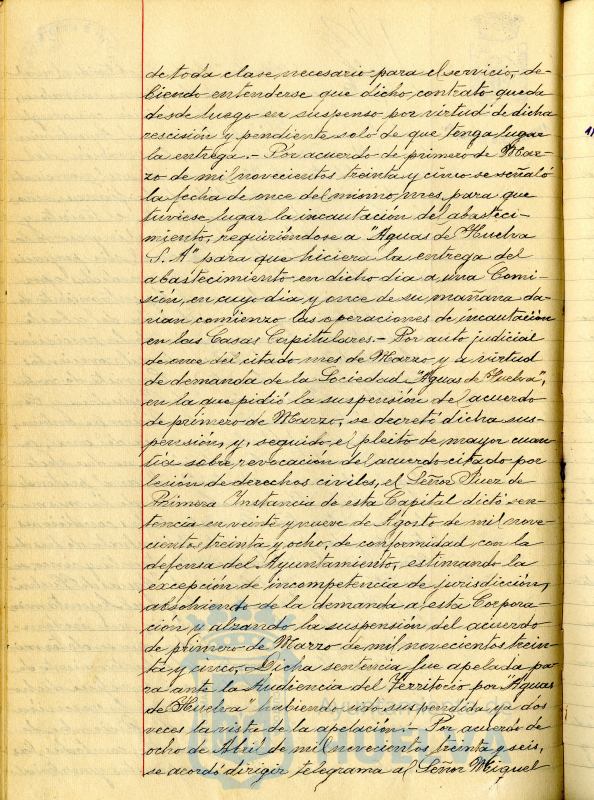 de toda clase necesario para el servicio, de-
biendo entenderse que dicho contrato queda
desde luego en suspenso por virtud de dicha
rescisión y pendiente solo de que tenga lugar
la entrega.- Por acuerdo de primero de Mar-
zo de mil novecientos treinta y cinco se señaló
la fecha de once del mismo mes, para que
tuviese lugar la incautación del abasteci-
miento, requiriéndose a "Aguas de Huelva
S.A." para que hiciera la entrega del
abastecimiento en dicho día a una Comi-
sión, en cuyo día y once de su mañana da-
rían comienzo las operaciones de incautación
en las Casas Capitulares.- Por auto judicial
de once del citado mes de Marzo, y a virtud
de demanda de la Sociedad "Aguas de Huelva",
en la que pidió la suspensión del acuerdo
de primero de Marzo, se decretó dicha sus-
pensión, y, seguido el pleito de mayor cuan-
tía sobre revocación del acuerdo citado por
lesión de derechos civiles, el Señor Juez de
Primera Instancia de esta Capital dictó sen-
tencia en veinte y nueve de Agosto de mil nove-
cientos treinta y ocho, de conformidad con la
defensa del Ayuntamiento, estimando la
excepción de incompetencia de jurisdicción,
absolviendo de la demanda a esta Corpora-
ción y alzando la suspensión del acuerdo
de primero de Marzo de mil novecientos trein-
ta y cinco. Dicha sentencia fue apelada pa-
ra ante la Audiencia del Territorio por "Aguas
de Huelva" habiendo sido suspendida ya dos
veces la vista de la apelación.- Por acuerdo de
ocho de Abril de mil novecientos treinta y seis,
se acordó dirigir telegrama al Señor Miguel
HUELVA